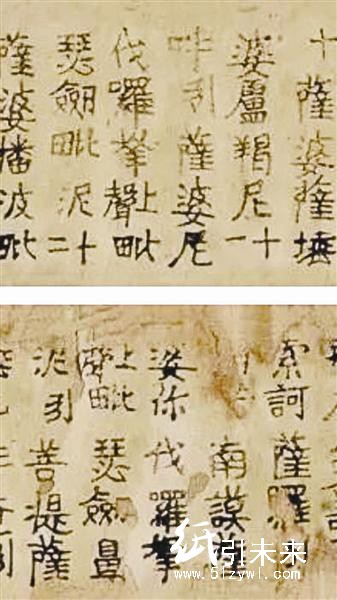 十薩婆薩埵
婆盧羯尼十一
吽引薩婆尼
伐囉拏上聲毗
瑟劒毗泥十二
薩婆播波毗
索訶薩囉
南謨
婆你伐囉拏
瑟劒鼻
泥引菩提薩
纸引未来
www.51zywl.com